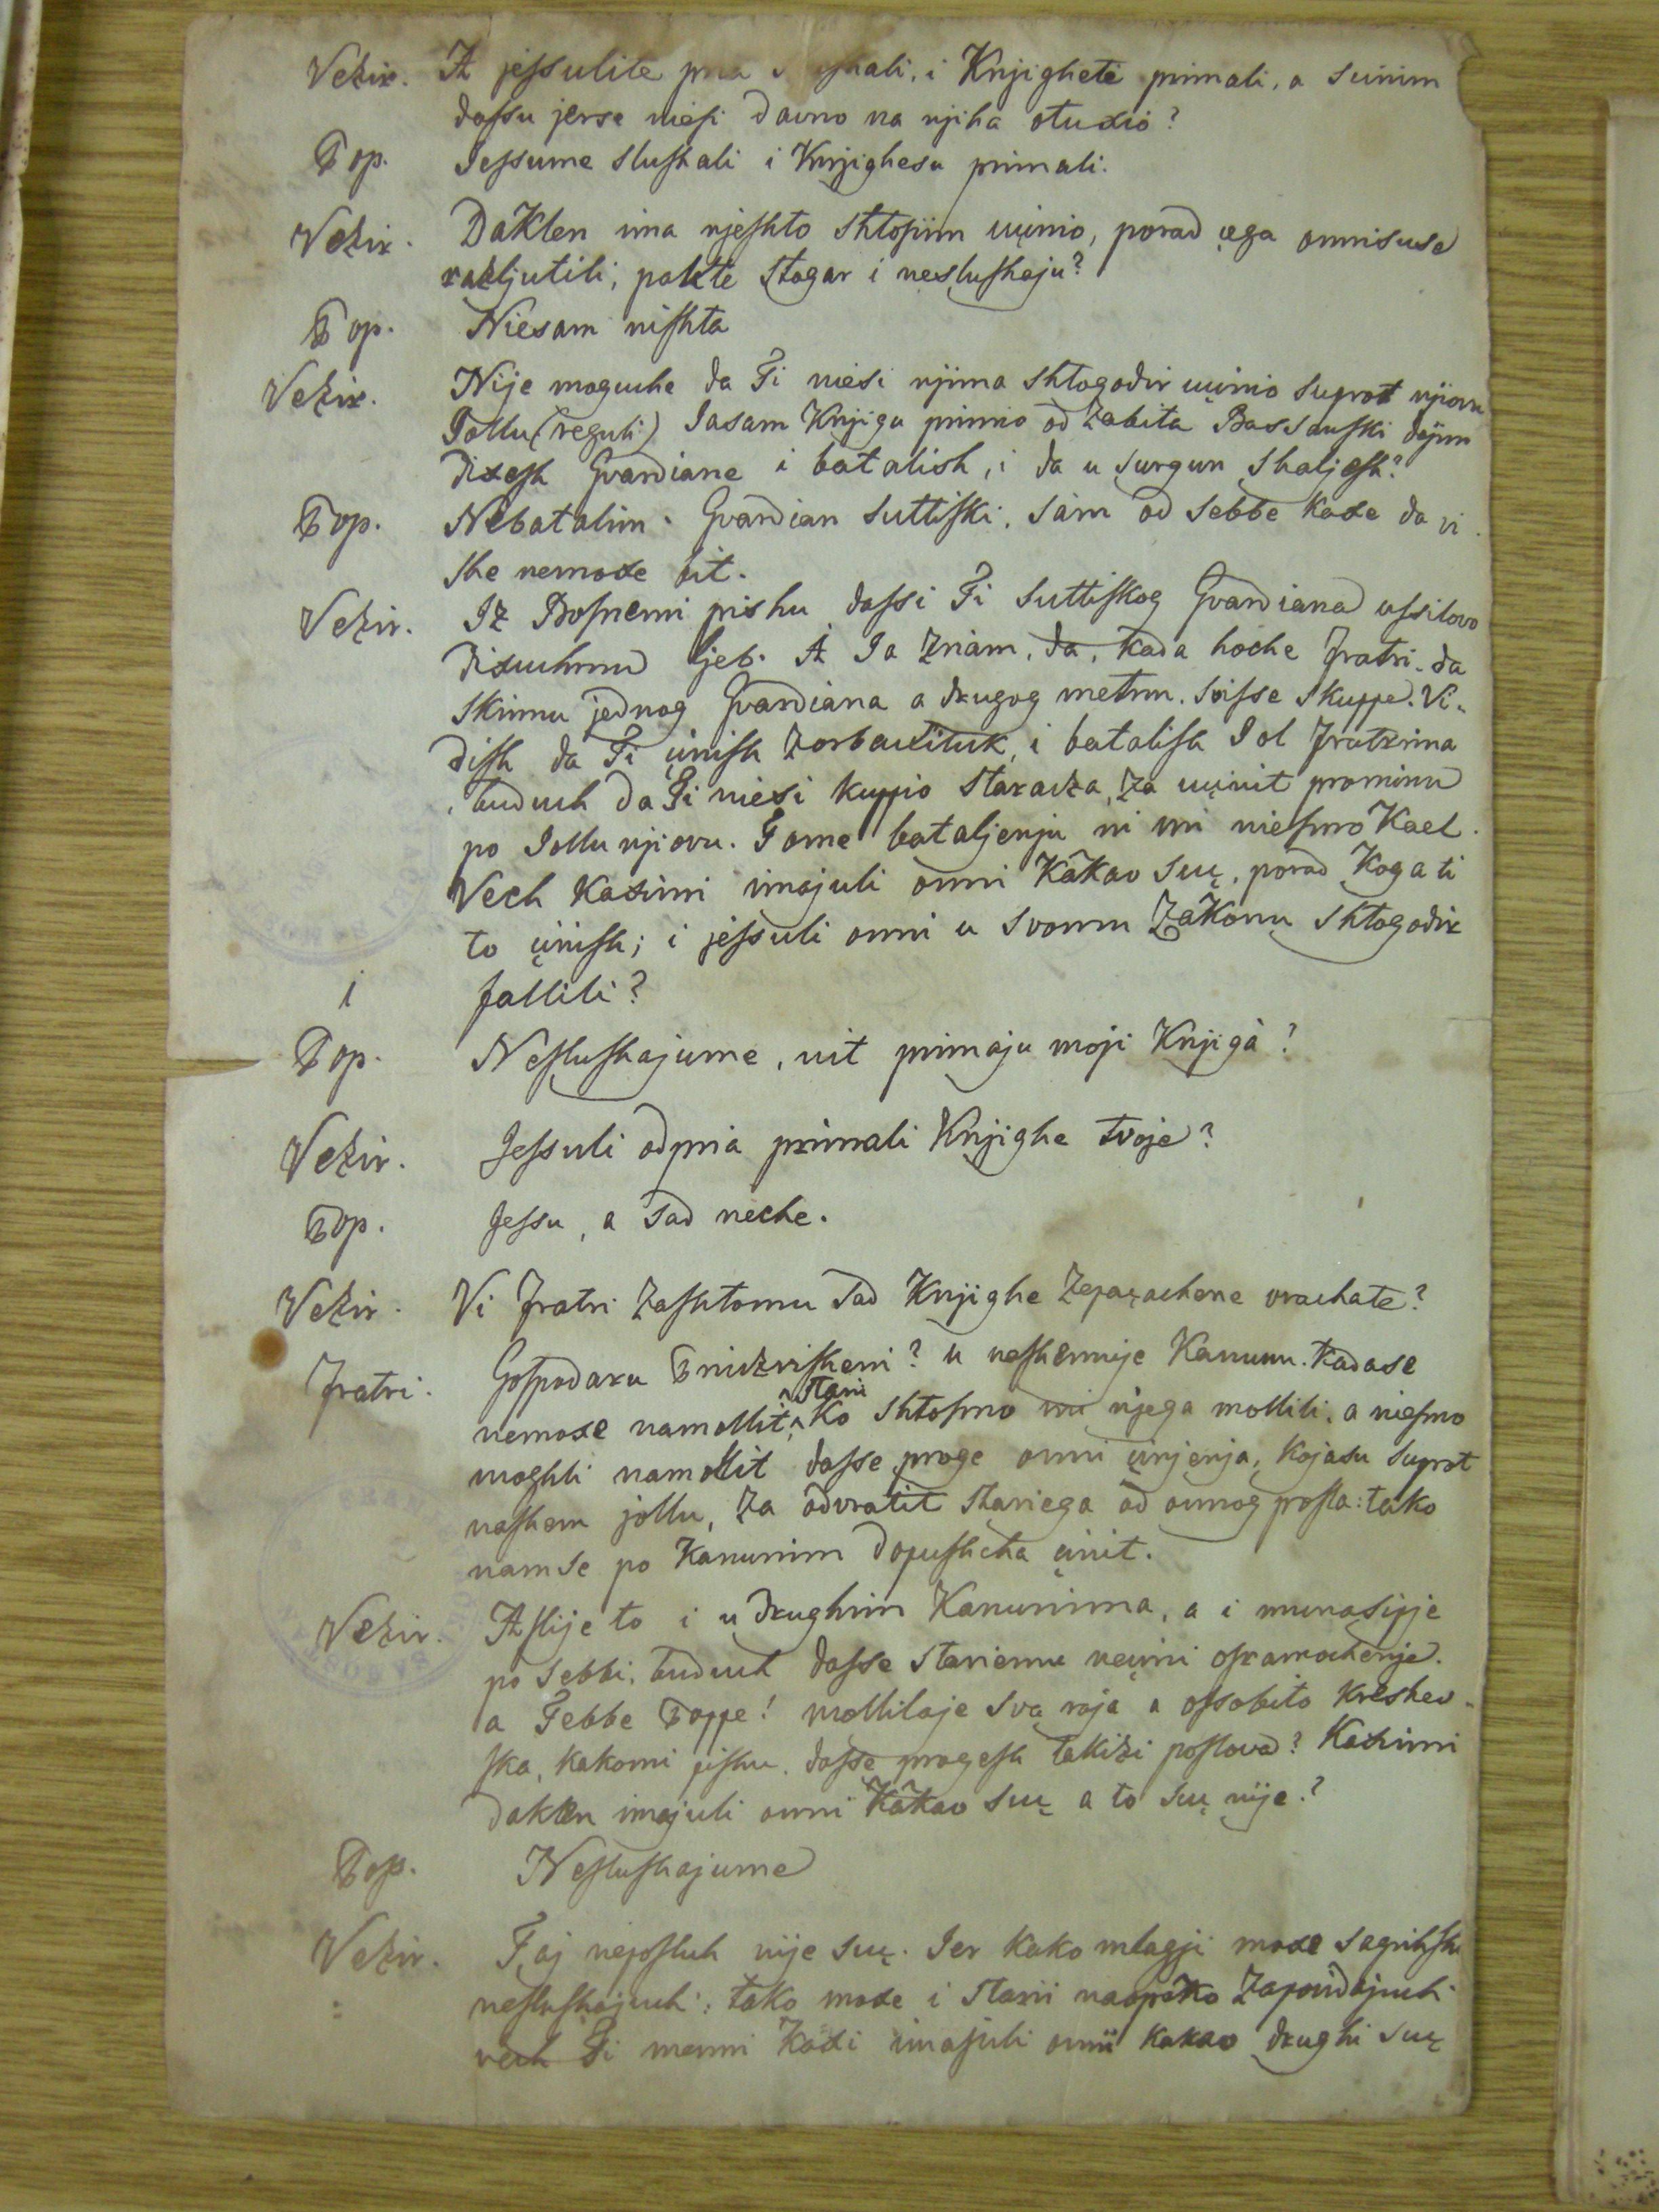 Vezir. A jessulite pria slushali, i Knjighete primali, a scinim
dassu jerse niesi davno na njiha otuxio?
Pop. Jessume slushali i Knjighesu primali.
Vezir. Daklen ima njeshto shtosiim uçinio, porad çega onnisuse
razljutili, pakte stogar i neslushaju?
Pop. Niesam nishta
Vezir. Nije moguche da Ti niesi njima shtogodir uçinio suprot njiovu
Jollu (reguli) Jasam Knjigu primio od Zabita Bossanski dajim
dixesh Gvardiane i batalish, i da u surgun shaljesh?
Pop. Nebatalim. Gvardian Suttiski, sám od sebbe kaxe da vi
she nemoxe bit.
Vezir. Iz Bosnemi pishu dassi Ti Suttiskog Gvardiana ussilovo
dixuchmu ljeb. A Ja znám, da, kada hoche Fratri da
skinnu jednog Gvardiana a drugog metnu. svisse skuppe. Vi-
dish da Ti çinish Zorbaxiluk, i batalish Jol Fratrima
, buduch da Ti niesi kuppio Staracza, za uçinit prominu
po Jollu njiovu. Tome bataljenju ni mi niesmo Kael.
Vech Kaximi imajuli onni Kâkav suç, porad koga ti
to çinish; i jessuli onni u svomu Zakonu shtogodir
i fallili?
Pop. Neslushajume, nit primaju moji Knjigà?
Vezir. Jessuli odpria primali Knjighe tvoje?
Pop. Jessu, a sad neche.
Vezir. Vi Fratri zashtomu sad Knjighe zepaçachene vrachate?
Fratri. Gospodaru Priuzvisheni? u nashemuje Kanunu. Kadase
nemoxe namollit, Starii
Ko shtosmo mi njega mollili, a niesmo
moghli namollit dasse proge onni çinjenja, kojasu suprot
nashem jollu, za odvratit Stariega od onnog posla: tako
namse po Kanunim dopushcha çinit.
Vezir. Aslije to i u drughiim Kanunima, a i munasipje
po sebbi, buduch dasse Stariemu neçini osramochenje.
a Tebbe Poppe! mollilaje sva raja a ossobito Kreshev-
ska, kakomi pishu, dasse progesh takizi poslova? Kaximi
daklen imajuli onni Kâkav suç a to suç nije?
Pop. Neslushajume
Vezir. Taj neposluh nije suç. Jer kako mlagji moxe sagriishi
neslushajuch: tako moxe i Starii naopako zapovidajuch
vech Ti menni Kaxi imajuli onni kakav drughi suç